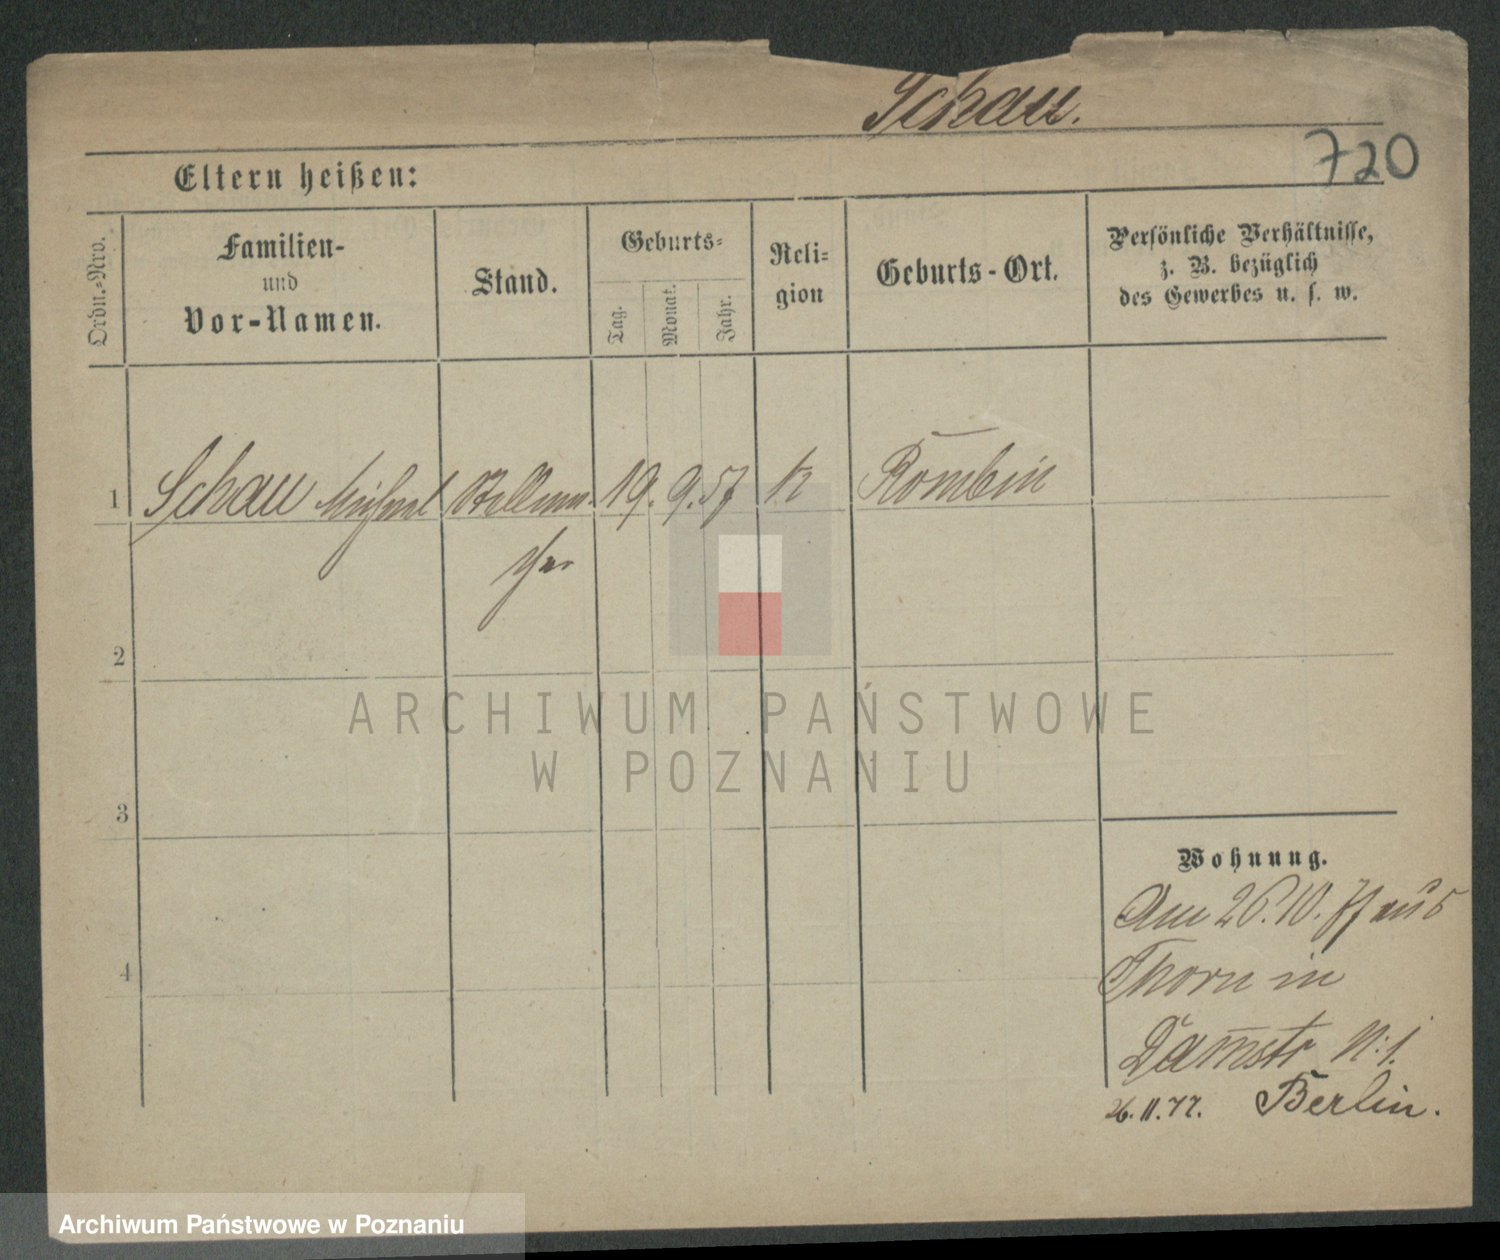 Schau.
720
Eltern heißen:
Ordn.-Nro.
Familien-
und
Vor-Namen.
Stand.
Geburts-
Tag.
Monat.
Jahr.
Reli-
gion
Geburts-Ort.
Persönliche Verhältnisse,
z. B. bezüglich
des Gewerbes u. s. w.
1 Schau Michael Stellma- 19. 9. 57 k Rombin
cher
2
3
4
ARCHIWUM PAŃSTWOWE
W POZNANIU
Wohnung.
Am 26.10.77 aus
Thorn in
Damstr N: 1.
26.11.77. Berlin.
Archiwum Państwowe w Poznaniu